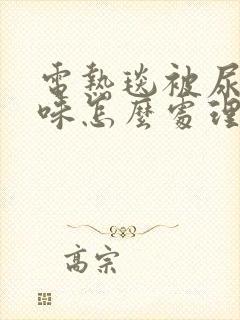 電熱毯被尿
味怎麼處理
高宗